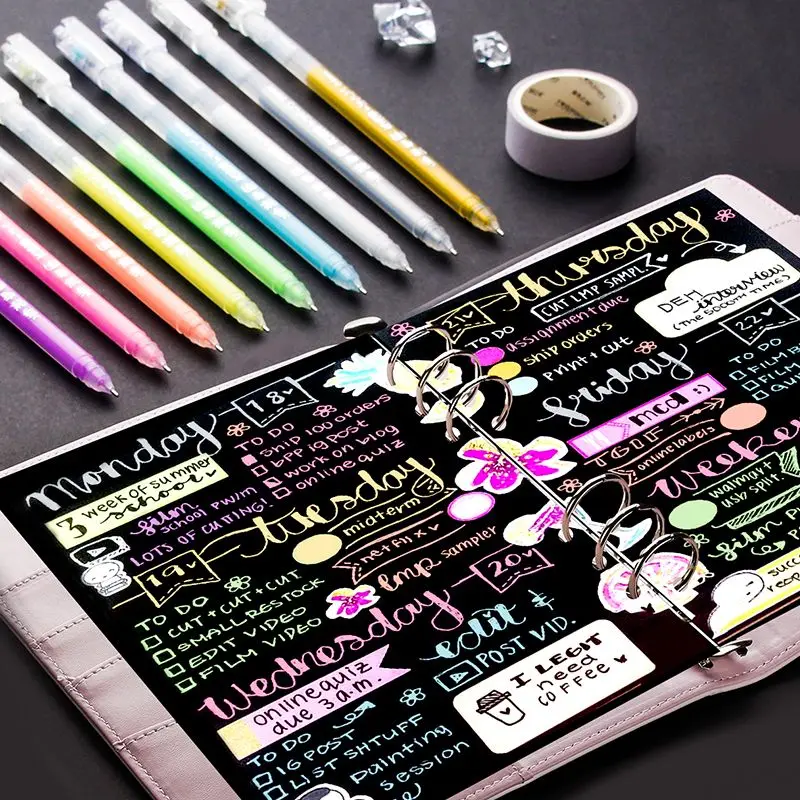 Monday
18
TO DO
SHIP 100 ORDERS
BPP IG POST
WORK ON BLOG
ONLINE QUIZ
3 week of summer
school
film
SCHOOL PW/M
LOTS OF CUTTING!
Tuesday
midterm
netflix
lmp sampler
19
TO DO
CUT + CUT + CUT
SMALL RESTOCK
EDIT VIDEO
FILM VIDEO
Wednesday
20
edit &
POST VID.
online quiz
due 3 a.m.
TO DO
IG POST
LIST SHTUFF
painting
session
I LEGIT
need
COFFEE
Thursday
21
CUT LMP SAMPL
TO DO
assignment due
ship orders
print + cut
DEM
interview
(THE 5000TH TIME)
Friday
22
TO DO
FILM
FILM
mcd :)
TGIF
online labels
Weeke
walmart
usb split
film